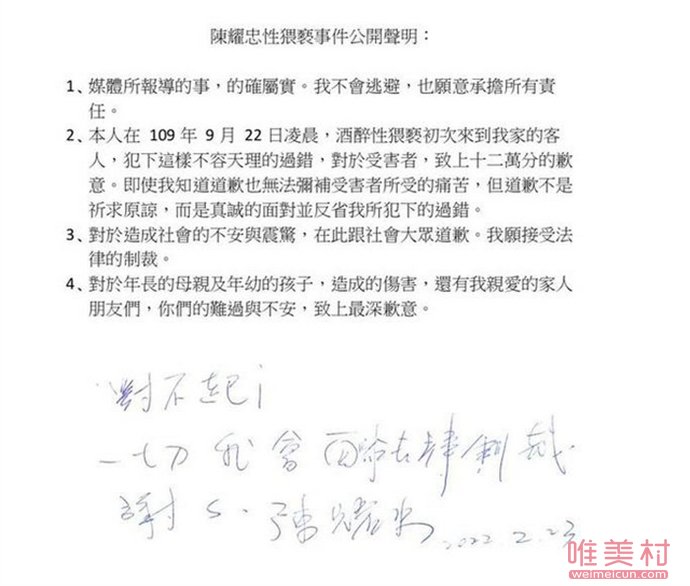 陳耀忠性猥褻事件公開聲明：
1、媒體所報導的事，的確屬實。我不會逃避，也願意承擔所有責
任。
2、本人在 109 年 9 月 22 日凌晨，酒醉性猥褻初次來到我家的客
人，犯下這樣不容天理的過錯，對於受害者，致上十二萬分的歉
意。即使我知道道歉也無法彌補受害者所受的痛苦，但道歉不是
祈求原諒，而是真誠的面對並反省我所犯下的過錯。
3、對於造成社會的不安與震驚，在此跟社會大眾道歉。我願接受法
律的制裁。
4、對於年長的母親及年幼的孩子，造成的傷害，還有我親愛的家人
朋友們，你們的難過與不安，致上最深歉意。
對不起！
一切我會面對法律制裁
謝 陳耀忠 2022.2.23
唯美村
weimeicun.com